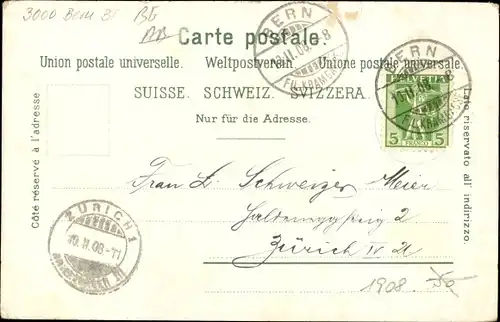 3000 Bern 31 BE
Carte postale.
Union postale universelle. Weltpostverein. Unione postale universale.
SUISSE. SCHWEIZ. SVIZZERA.
Nur für die Adresse.
Côté réservé à l'adresse
Lato riservato all' indirizzo.
BERN
FIL. KRAMG.
BERN
15.II.08. 8
FIL. KRAMG.
HELVETIA
5 FRANCO 5
ZÜRICH 1
II.08-11
Frau L. Schweizer Meier
2
Zürich
1908